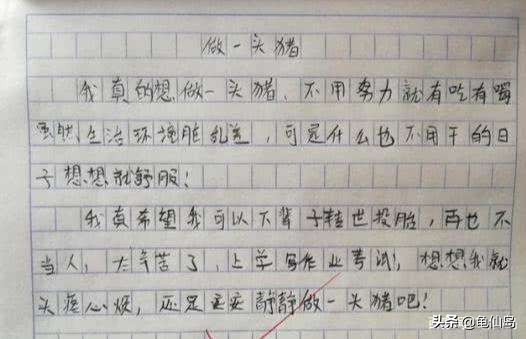 做一头猪
我真的想做一头猪,不用努力就有吃有喝
虽然生活环境脏乱差,可是什么也不用干的日
子想想就舒服!
我真希望我可以下辈子转世投胎,再也不
当人,太辛苦了,上学写作业考试!,想想我就
头疼心烦,还是安安静静做一头猪吧!
头条@龟仙岛